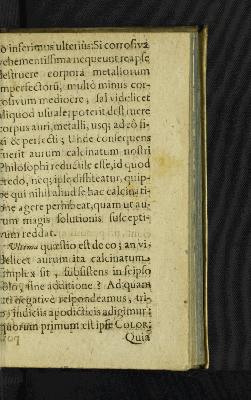 o inferimus ulterius: Si corrosiva
vehementissima nequeunt reapse
destruere corpora metallorum
imperfectorũ; multò minus cor-
rosivum mediocre, sal videlicet
aliquod usuale; poterit destruere
corpus auri, metalli, usq; adeò fi-
xi & perfecti; Unde consequens
fuerit aurum calcinatum nostri
Philosophi reducibile esse, id quod
credo, neq; ipse diffitetur, quip-
pe qui nihil aliud se hac calcinati-
one agere perhibeat, quam ut au-
rum magis solutionis suscepti-
vum reddat.
Ultima quæstio est de eo; an vi-
delicet aurum ita calcinatum,
simplex sit, subsistens in seipso
solo, sine additione? Ad quam
uti negative respondeamus, tri-
bus indiciis apodicticis adigimur;
quorum primum est ipse COLOR;
Quia